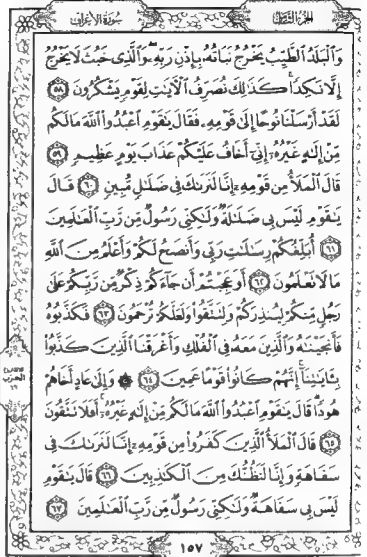 الجزء الثامن
سورة الأعراف
وَٱلْبَلَدُ ٱلطَّيِّبُ يَخْرُجُ نَبَاتُهُۥ بِإِذْنِ رَبِّهِۦ وَٱلَّذِى خَبُثَ لَا يَخْرُجُ
إِلَّا نَكِدًا ۚ كَذَٰلِكَ نُصَرِّفُ ٱلْءَايَٰتِ لِقَوْمٍ يَشْكُرُونَ ٥٨
لَقَدْ أَرْسَلْنَا نُوحًا إِلَىٰ قَوْمِهِۦ فَقَالَ يَٰقَوْمِ ٱعْبُدُوا۟ ٱللَّهَ مَا لَكُم
مِّنْ إِلَٰهٍ غَيْرُهُۥٓ إِنِّىٓ أَخَافُ عَلَيْكُمْ عَذَابَ يَوْمٍ عَظِيمٍ ٥٩
قَالَ ٱلْمَلَأُ مِن قَوْمِهِۦٓ إِنَّا لَنَرَىٰكَ فِى ضَلَٰلٍ مُّبِينٍ ٦٠ قَالَ
يَٰقَوْمِ لَيْسَ بِى ضَلَٰلَةٌ وَلَٰكِنِّى رَسُولٌ مِّن رَّبِّ ٱلْعَٰلَمِينَ
٦١ أُبَلِّغُكُمْ رِسَٰلَٰتِ رَبِّى وَأَنصَحُ لَكُمْ وَأَعْلَمُ مِنَ ٱللَّهِ
مَا لَا تَعْلَمُونَ ٦٢ أَوَعَجِبْتُمْ أَن جَآءَكُمْ ذِكْرٌ مِّن رَّبِّكُمْ عَلَىٰ
رَجُلٍ مِّنكُمْ لِيُنذِرَكُمْ وَلِتَتَّقُوا۟ وَلَعَلَّكُمْ تُرْحَمُونَ ٦٣ فَكَذَّبُوهُ
فَأَنجَيْنَٰهُ وَٱلَّذِينَ مَعَهُۥ فِى ٱلْفُلْكِ وَأَغْرَقْنَا ٱلَّذِينَ كَذَّبُوا۟
بِـَٔايَٰتِنَآ ۚ إِنَّهُمْ كَانُوا۟ قَوْمًا عَمِينَ ٦٤ ۞ وَإِلَىٰ عَادٍ أَخَاهُمْ
هُودًا ۗ قَالَ يَٰقَوْمِ ٱعْبُدُوا۟ ٱللَّهَ مَا لَكُم مِّنْ إِلَٰهٍ غَيْرُهُۥٓ ۚ أَفَلَا تَتَّقُونَ
٦٥ قَالَ ٱلْمَلَأُ ٱلَّذِينَ كَفَرُوا۟ مِن قَوْمِهِۦٓ إِنَّا لَنَرَىٰكَ فِى
سَفَاهَةٍ وَإِنَّا لَنَظُنُّكَ مِنَ ٱلْكَٰذِبِينَ ٦٦ قَالَ يَٰقَوْمِ
لَيْسَ بِى سَفَاهَةٌ وَلَٰكِنِّى رَسُولٌ مِّن رَّبِّ ٱلْعَٰلَمِينَ ٦٧
١٥٧